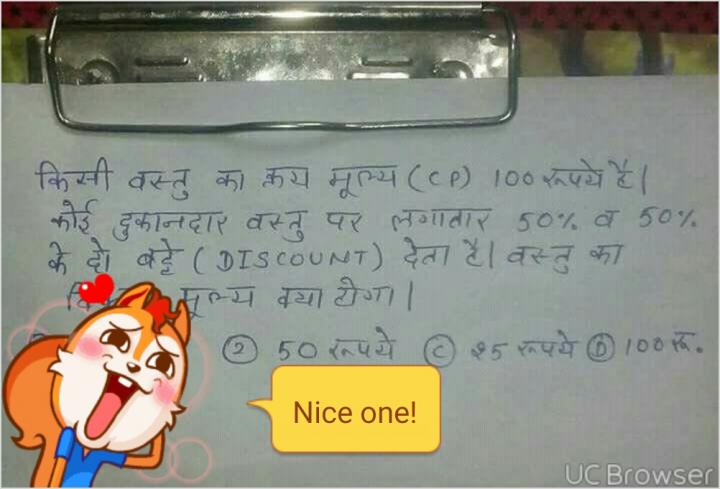 किसी वस्तु का क्रय मूल्य (CP) 100 रूपये है|
कोई दुकानदार वस्तु पर लगातार 50% व 50%
के दो बट्टे (DISCOUNT) देता है| वस्तु का
मूल्य क्या होगा |
② 50 रूपये Ⓒ 25 रूपये Ⓓ 100 रू.
Nice one!
UC Browser